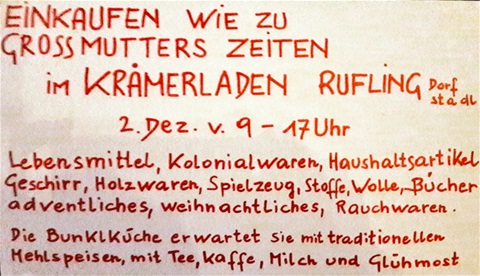 EINKAUFEN WIE ZU
GROSSMUTTERS ZEITEN
im KRÄMERLADEN RUFLING Dorf
stadl
2. Dez. v. 9 - 17 Uhr
Lebensmittel, Kolonialwaren, Haushaltsartikel
Geschirr, Holzwaren, Spielzeug, Stoffe, Wolle, Bücher
adventliches, weihnachtliches, Rauchwaren.
Die Bunklküche erwartet sie mit traditionellen
Mehlspeisen, mit Tee, Kaffe, Milch und Glühmost